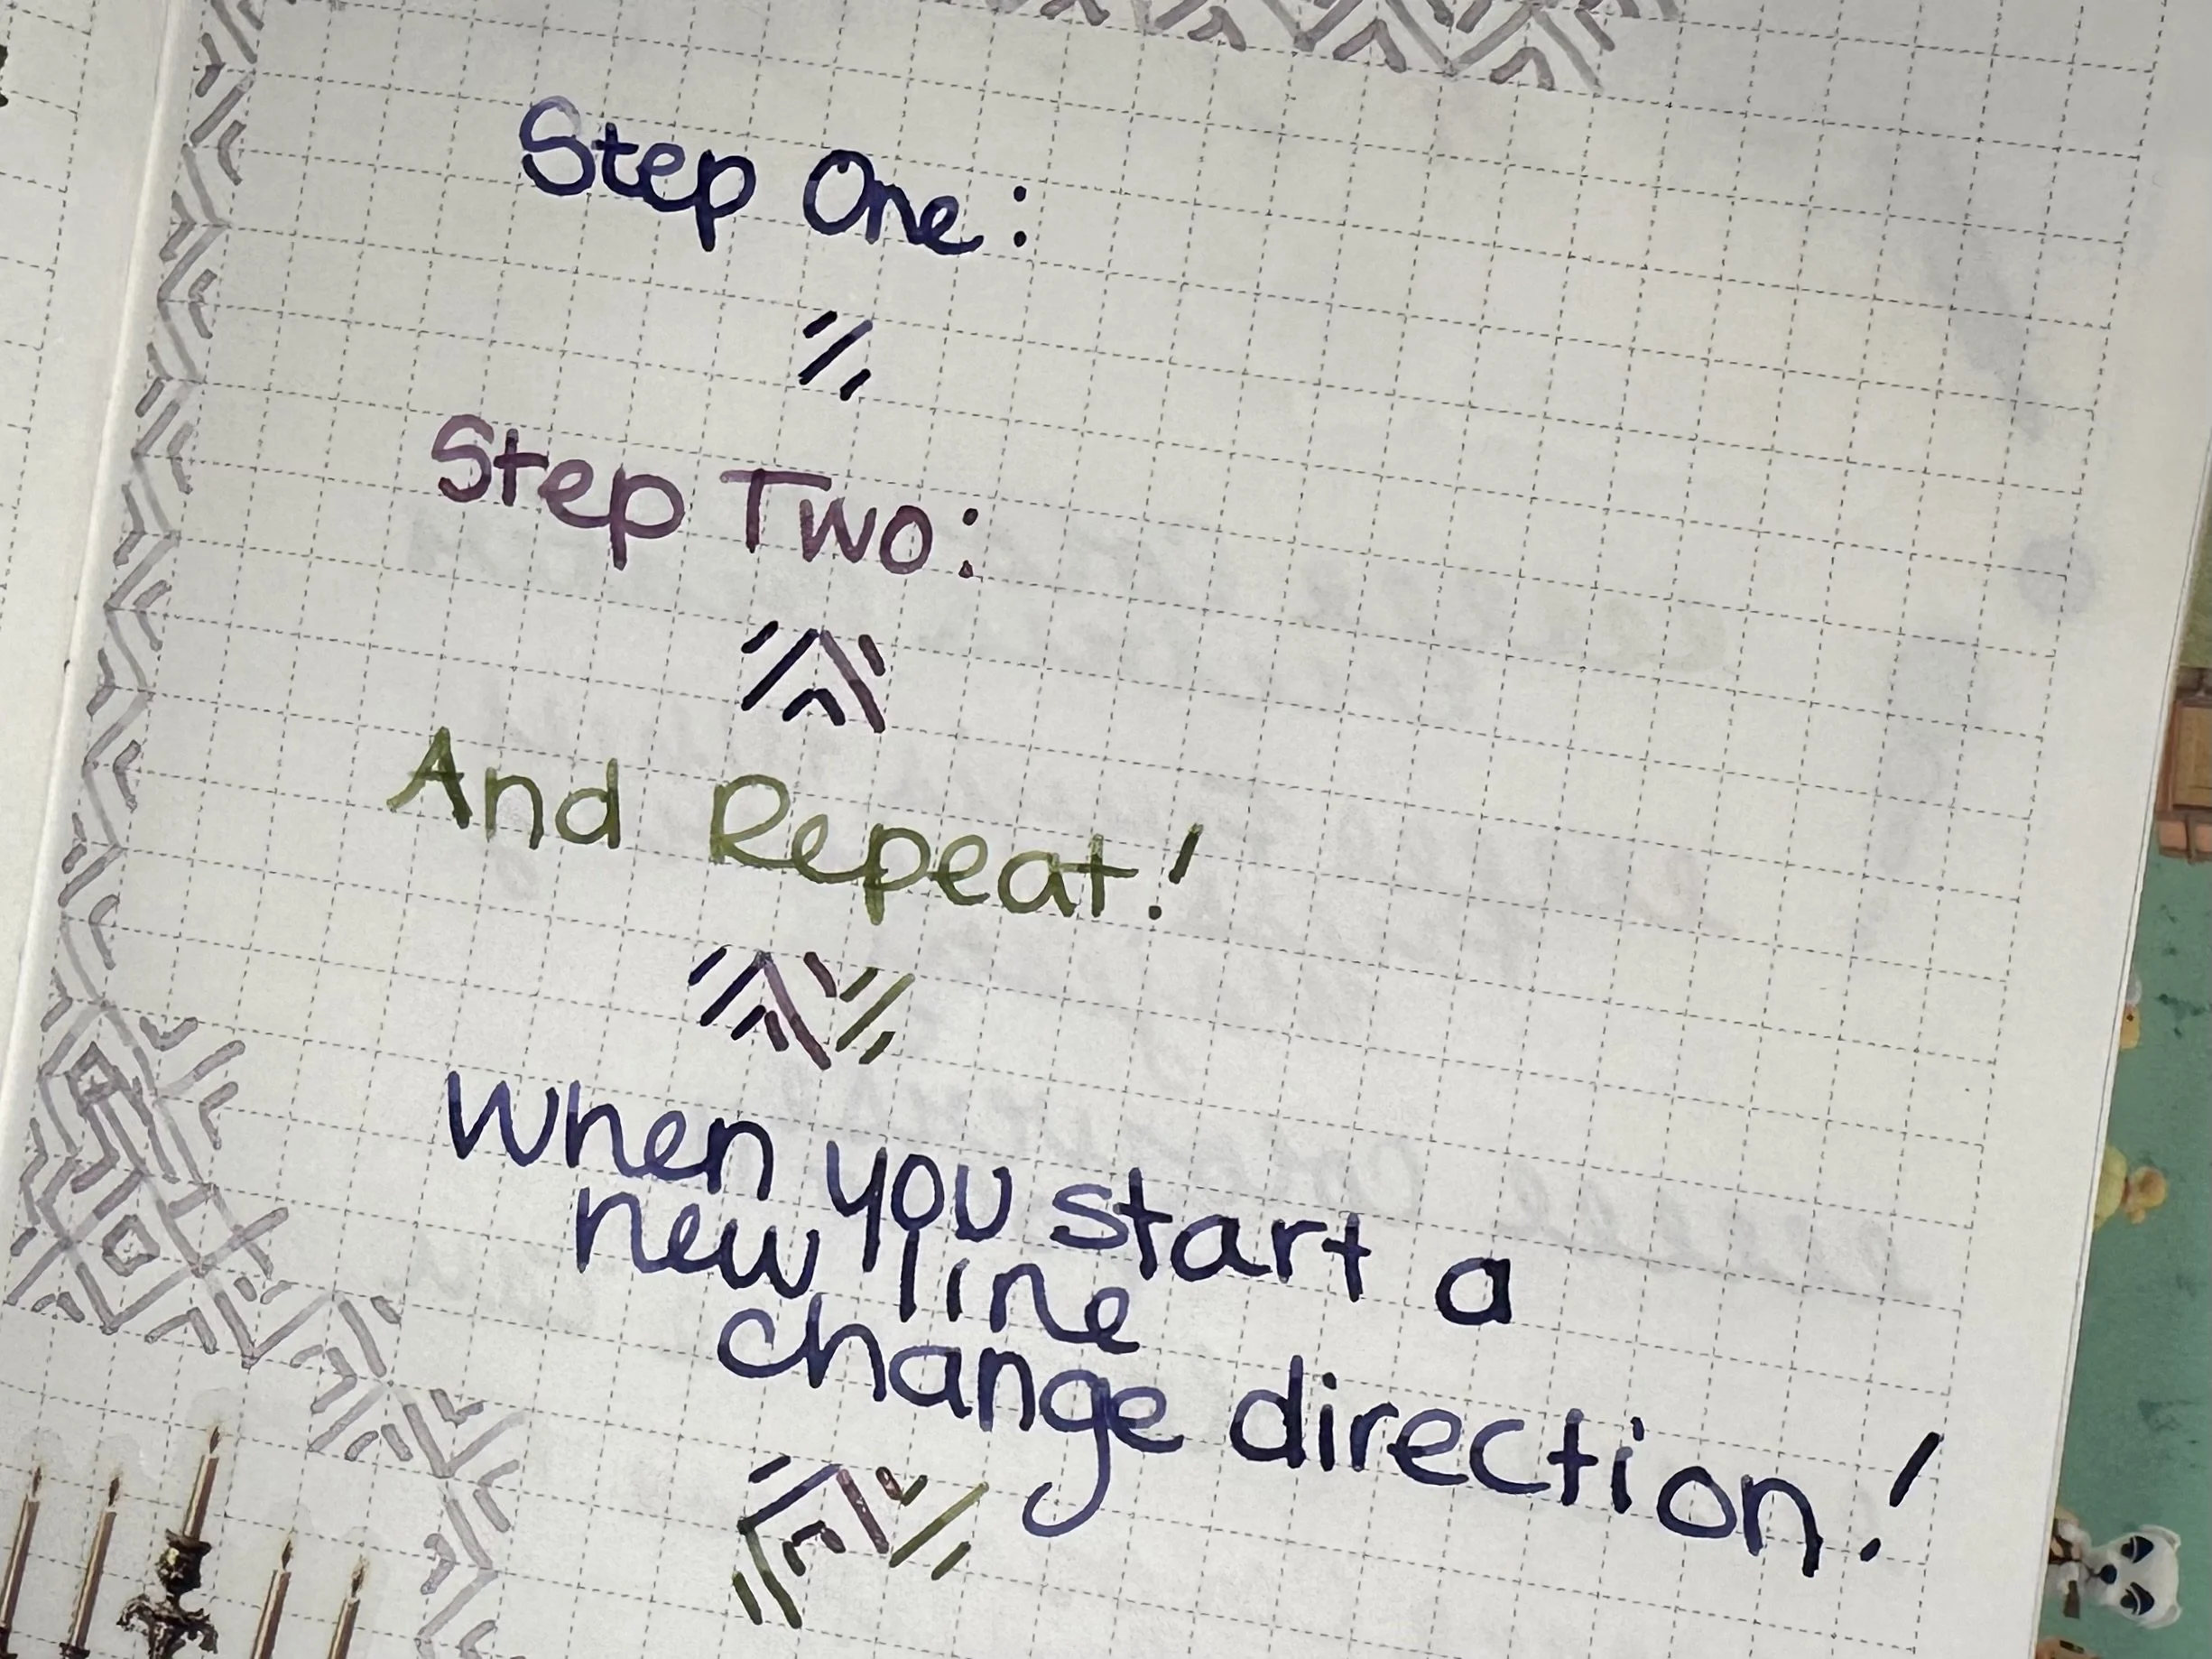 Step One:
Step Two:
And Repeat!
When you start a
new line
change direction!